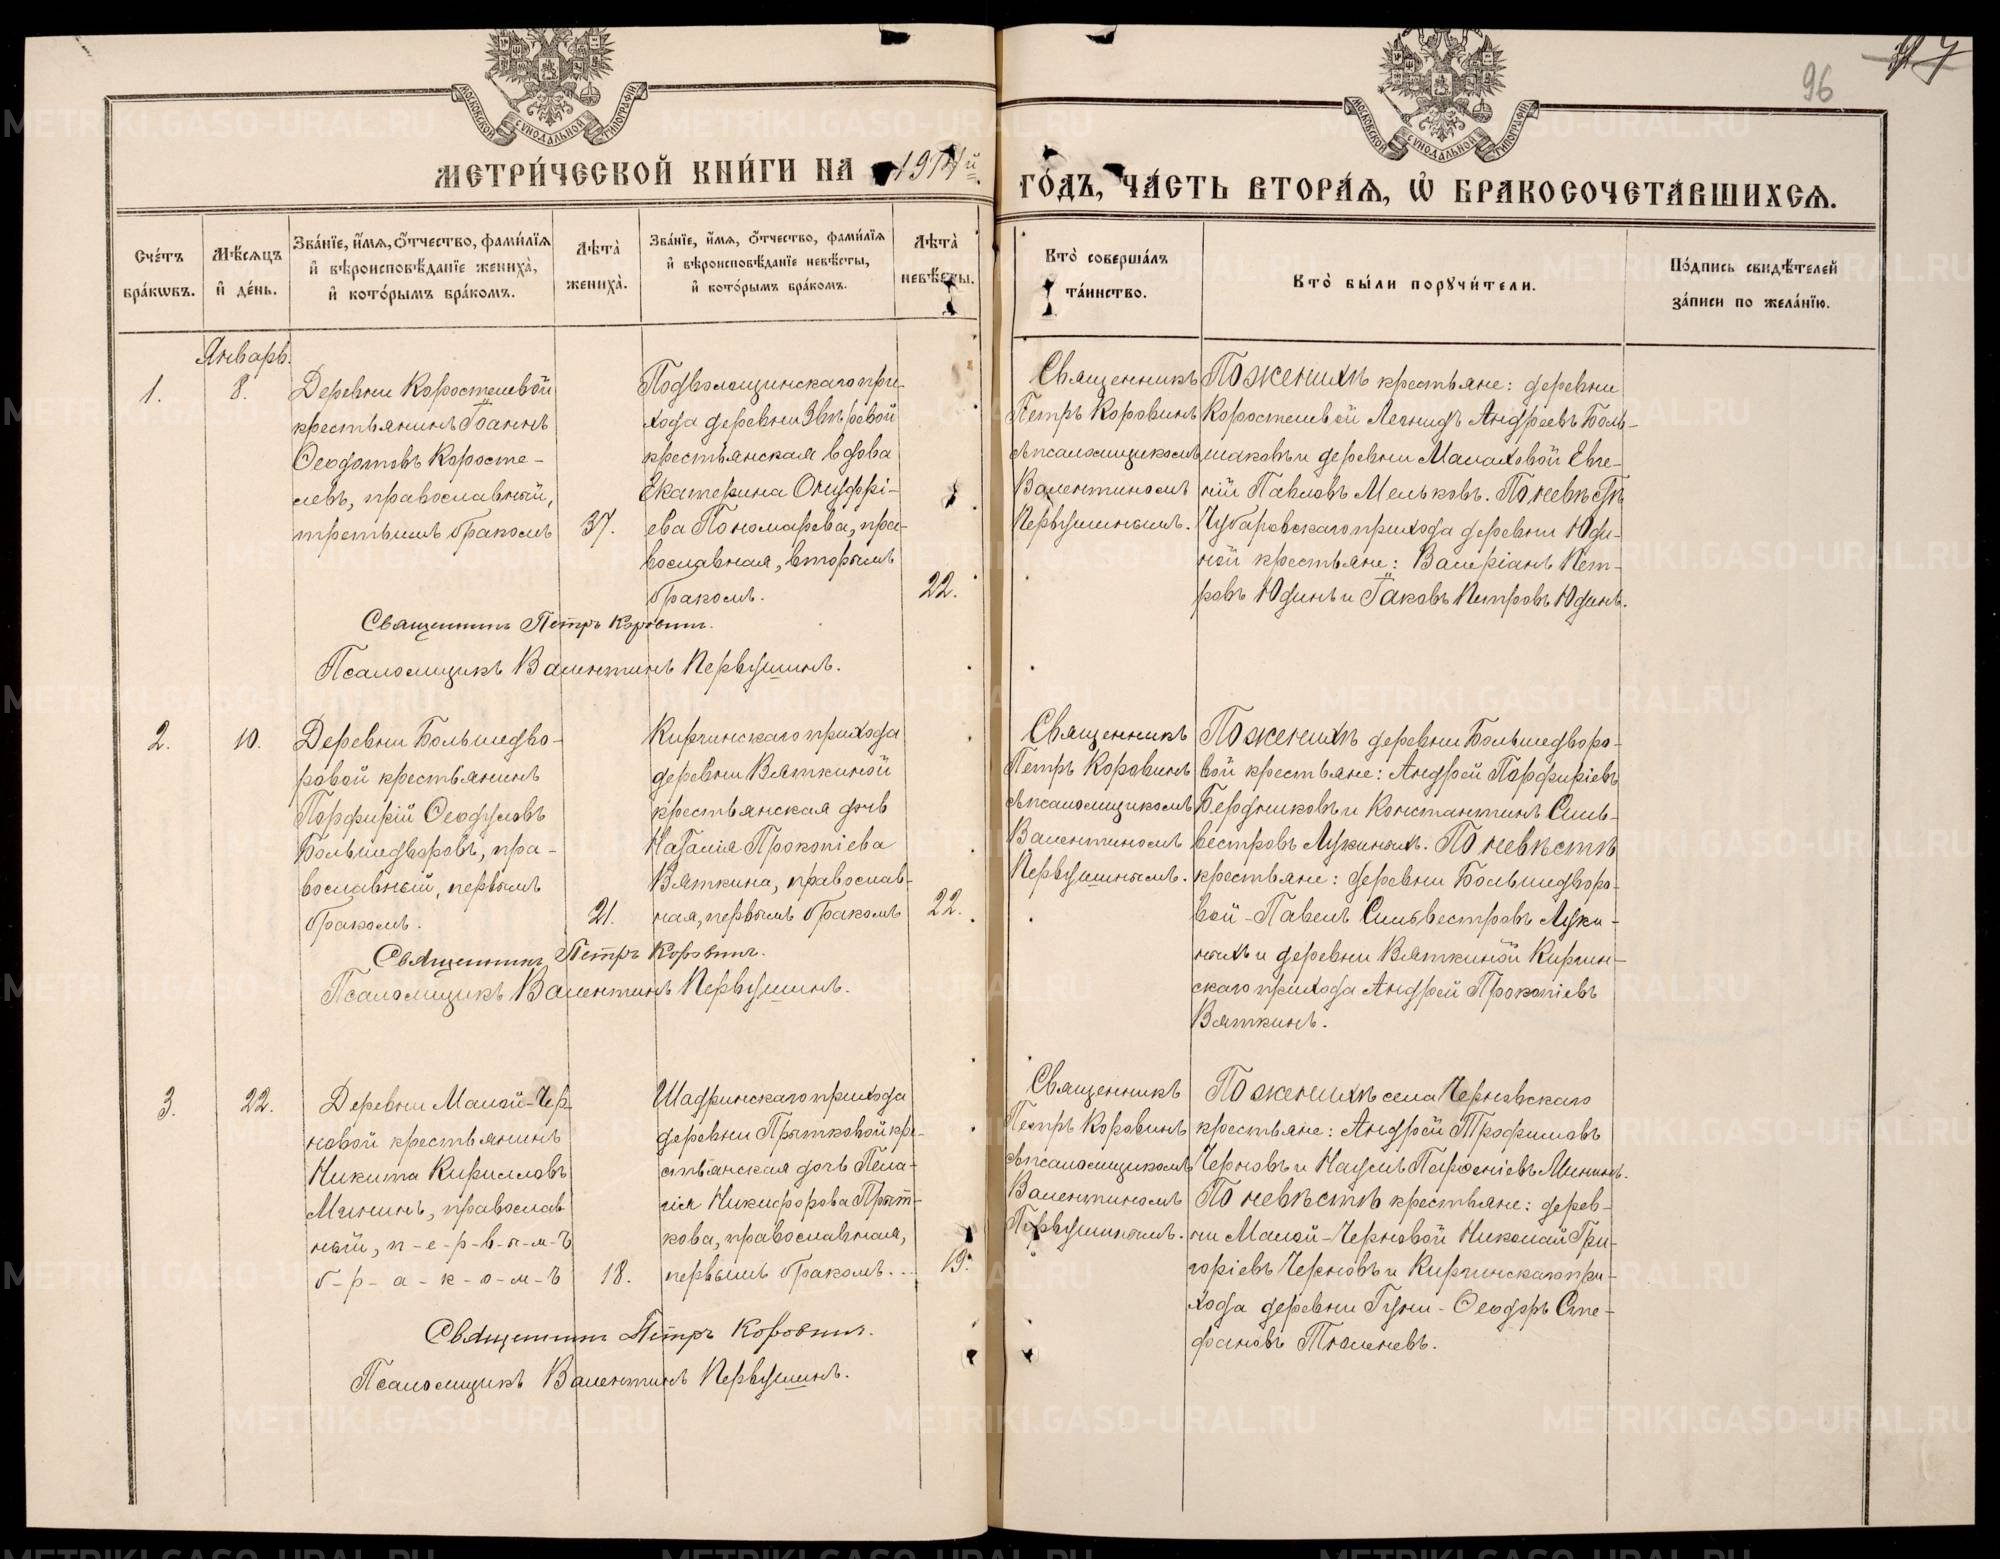 96
МЕТРИ́ЧЕСКОЙ КНИ́ГИ НА 1914й
ГО́ДЪ, ЧА́СТЬ ВТОРА́Я, Ѡ҆ БРАКОСОЧЕТА́ВШИХСЯ.
МОСКОВСКОЙ СУНОДАЛЬНОЙ ТИПОГРАФІИ
МОСКОВСКОЙ СУНОДАЛЬНОЙ ТИПОГРАФІИ
Сче́тъ бра́кѡвъ.
Мѣ́сяцъ и҆ де́нь.
Зва́нїе, и҆́мя, ѻ҆́тчество, фами́лїя и҆ вѣроисповѣ́данїе жениха̀, и҆ кото́рымъ бра́комъ.
Лѣ́та̀ жениха̀.
Зва́нїе, и҆́мя, ѻ҆́тчество, фами́лїя и҆ вѣроисповѣ́данїе невѣ́сты, и҆ кото́рымъ бра́комъ.
Лѣ́та̀ невѣ́сты.
Кто̀ соверша́лъ та́инство.
Кто̀ бы́ли порꙋчи́тели.
По́дпись свидѣ́телей за́писи по жела́нїю.
Январь.
1.
8.
Деревни Коростелевой
крестьянинъ Іоаннъ
Ѳеодотовъ Коросте-
левъ, православный,
третьимъ бракомъ
37.
Подволошинскаго при-
хода деревни Звѣревой
крестьянская вдова
Екатерина Онуфрі-
ева Пономарева, пра-
вославная, вторымъ
бракомъ.
22.
Священникъ
Петръ Коровинъ
съ псаломщикомъ
Валентиномъ
Первушинымъ.
По женихѣ крестьяне: деревни
Коростелевой Леонидъ Андреевъ Боль-
шаковъ и деревни Малаховой Евге-
ній Павловъ Мельковъ. По невѣстѣ
Чубаровскаго прихода деревни Юди-
ной крестьяне: Валеріанъ Пет-
ровъ Юдинъ и Іаковъ Петровъ Юдинъ.
Священникъ Петръ Коровинъ.
Псаломщикъ Валентинъ Первушинъ.
2.
10.
Деревни Большедво-
ровой крестьянинъ
Порфирій Ѳеодуловъ
Большедворовъ, пра-
вославный, первымъ
бракомъ.
21.
Киргинскаго прихода
деревни Вяткиной
крестьянская дочь
Наталія Прокопіева
Вяткина, православ-
ная, первымъ бракомъ
22.
Священникъ
Петръ Коровинъ
съ псаломщикомъ
Валентиномъ
Первушинымъ.
По женихѣ деревни Большедворо-
вой крестьяне: Андрей Порфиріевъ
Бердниковъ и Константинъ Силь-
вестровъ Лукиныхъ. По невѣстѣ
крестьяне: деревни Большедворо-
вой - Павелъ Сильвестровъ Луки-
ныхъ и деревни Вяткиной Киргин-
скаго прихода Андрей Прокопіевъ
Вяткинъ.
Священникъ Петръ Коровинъ.
Псаломщикъ Валентинъ Первушинъ.
3.
22.
Деревни Малой-Чер-
новой крестьянинъ
Никита Кирилловъ
Мининъ, православ
ный, п-е-р-в-ы-м-ъ
б-р-а-к-о-м-ъ
18.
Шадринскаго прихода
деревни Прытковой кре-
стьянская дочь Пела-
гія Никифорова Прыт-
кова, православная,
первымъ бракомъ...
19.
Священникъ
Петръ Коровинъ
съ псаломщикомъ
Валентиномъ
Первушинымъ.
По женихѣ села Черновскаго
крестьяне: Андрей Трофимовъ
Черновъ и Наумъ Парѳеніевъ Мининъ.
По невѣстѣ крестьяне: дерев-
ни Малой-Черновой Николай Гри-
горіевъ Черновъ и Киргинскаго при-
хода деревни Гуни - Ѳеодоръ Сте-
фановъ Тюленевъ.
Священникъ Петръ Коровинъ.
Псаломщикъ Валентинъ Первушинъ.
METRIKI.GASO-URAL.RU